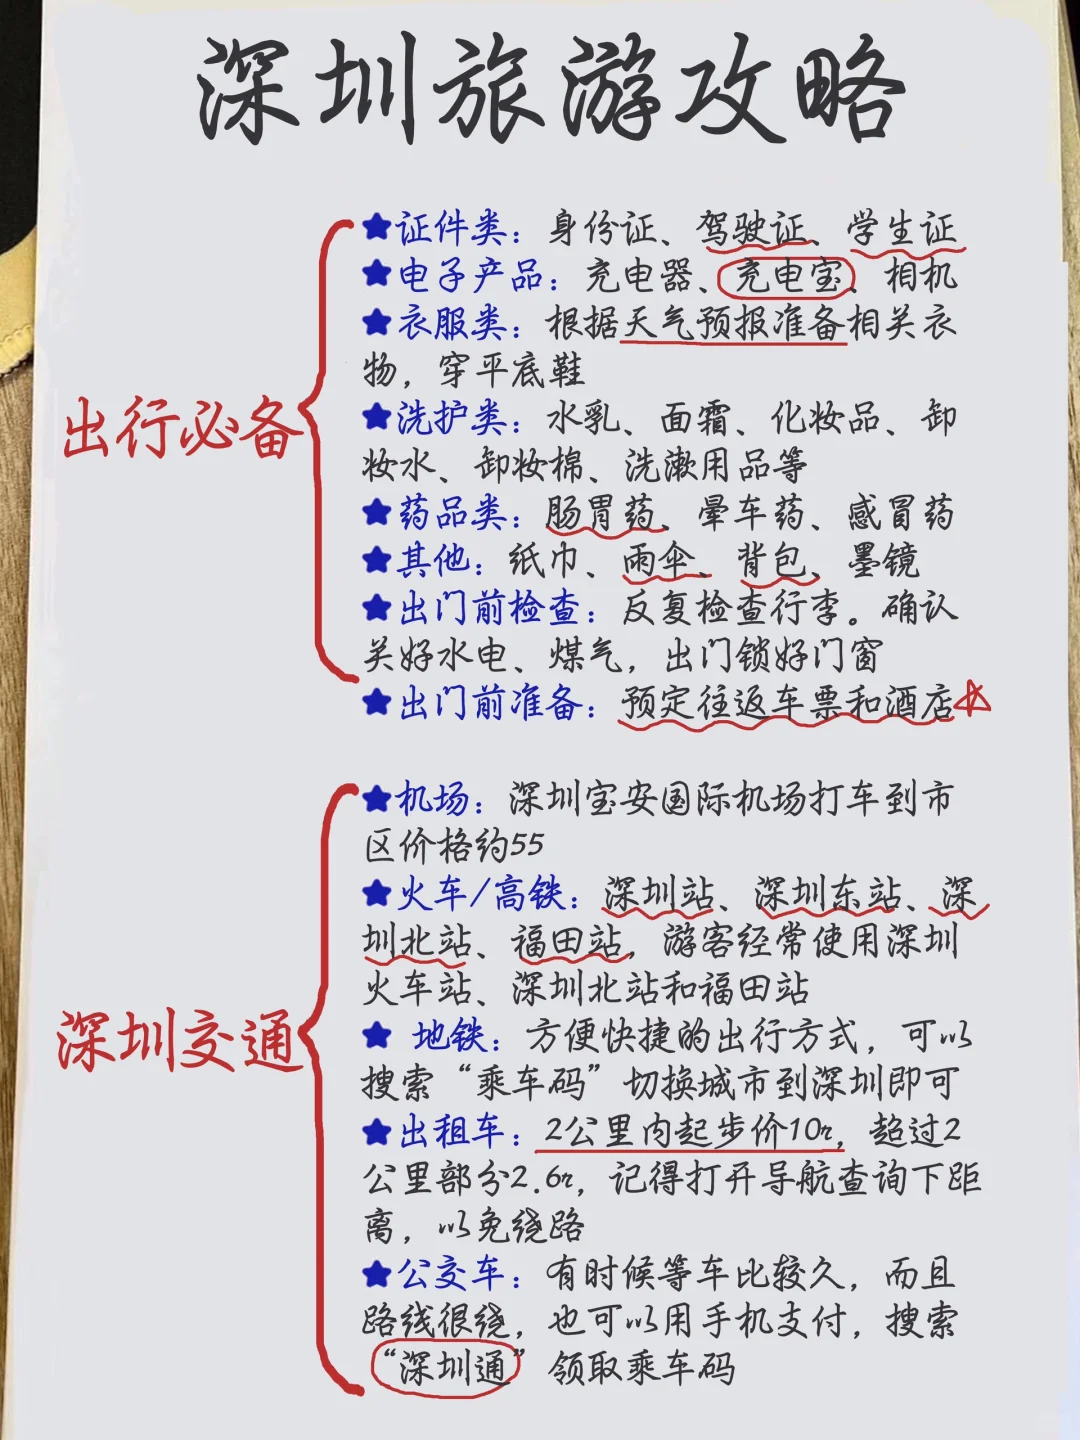 深圳旅游攻略
出行必备
★证件类：身份证、驾驶证、学生证
★电子产品：充电器、充电宝、相机
★衣服类：根据天气预报准备相关衣
物，穿平底鞋
★洗护类：水乳、面霜、化妆品、卸
妆水、卸妆棉、洗漱用品等
★药品类：肠胃药、晕车药、感冒药
★其他：纸巾、雨伞、背包、墨镜
★出门前检查：反复检查行李。确认
关好水电、煤气，出门锁好门窗
★出门前准备：预定往返车票和酒店☆
深圳交通
★机场：深圳宝安国际机场打车到市
区价格约55
★火车/高铁：深圳站、深圳东站、深
圳北站、福田站，游客经常使用深圳
火车站、深圳北站和福田站
★ 地铁：方便快捷的出行方式，可以
搜索“乘车码”切换城市到深圳即可
★出租车：2公里内起步价10r，超过2
公里部分2.6r，记得打开导航查询下距
离，以免绕路
★公交车：有时候等车比较久，而且
路线很绕，也可以用手机支付，搜索
“深圳通”领取乘车码